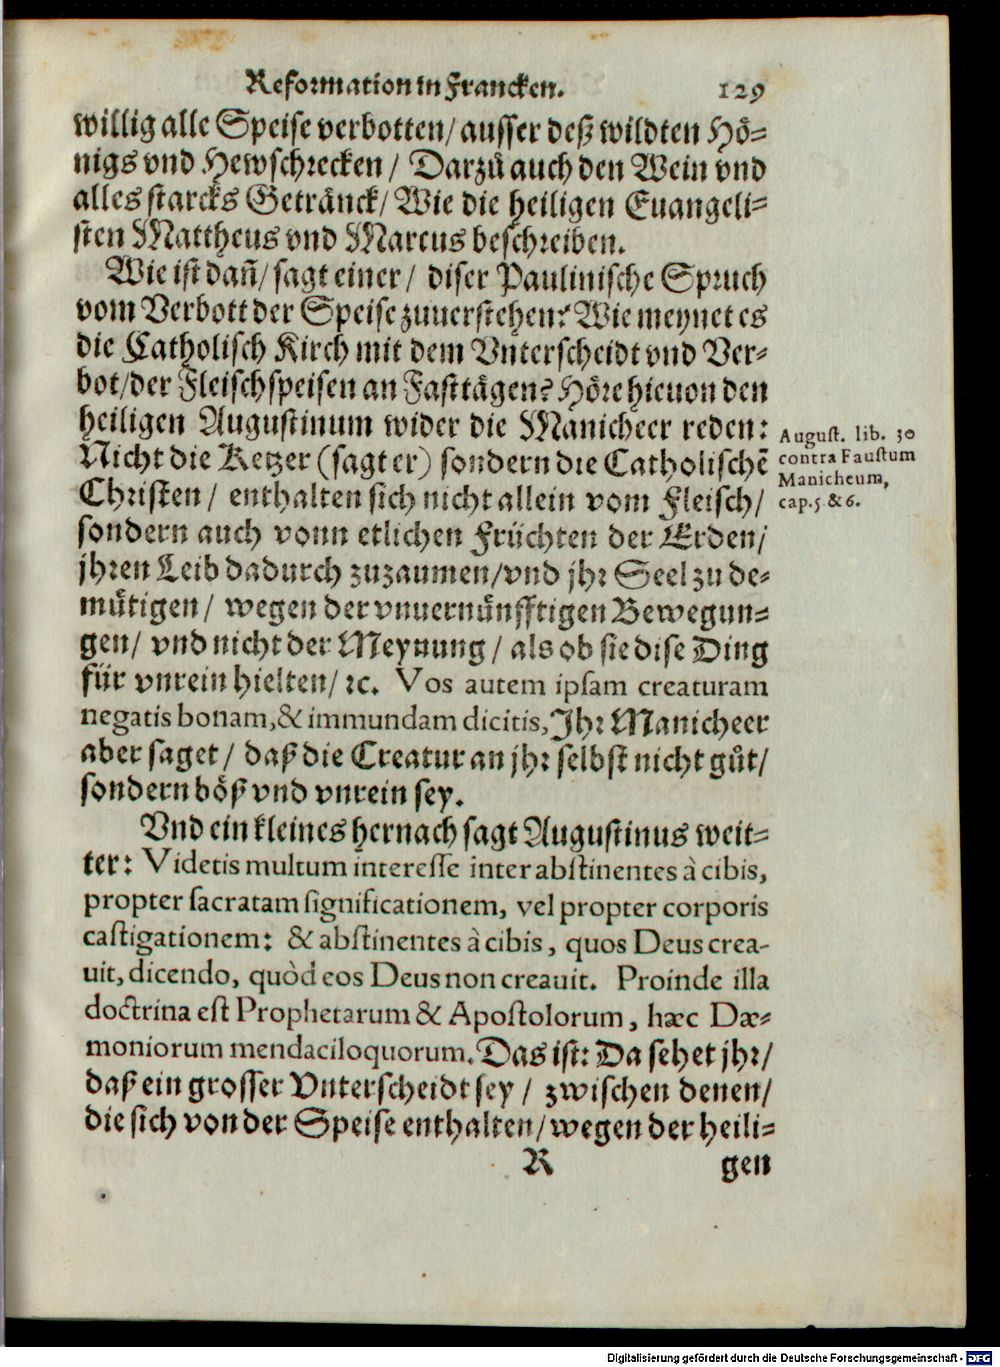 Reformation in Francken. 129
willig alle Speise verbotten/ ausser deß wildten Hö-
nigs vnd Hewschrecken/ Darzů auch den Wein vnd
alles starcks Getränck/ Wie die heiligen Euangeli-
sten Mattheus vnd Marcus beschreiben.
Wie ist dañ/ sagt einer/ diser Paulinische Spruch
vom Verbott der Speise zuuerstehen? Wie meynet es
die Catholisch Kirch mit dem Vnterscheidt vnd Ver-
bot/ der Fleischspeisen an Fasttägen? Höre hieuon den
heiligen Augustinum wider die Manicheer reden:
Nicht die Ketzer (sagt er) sondern die Catholischẽ
Christen/ enthalten sich nicht allein vom Fleisch/
sondern auch vonn etlichen Früchten der Erden/
jhren Leib dadurch zuzaumen/ vnd jhr Seel zu de-
mütigen/ wegen der vnuernünfftigen Bewegun-
gen/ vnd nicht der Meynung/ als ob sie dise Ding
für vnrein hielten/ ꝛc. Vos autem ipsam creaturam
negatis bonam, & immundam dicitis, Jhr Manicheer
aber saget/ daß die Creatur an jhr selbst nicht gůt/
sondern böß vnd vnrein sey.
Vnd ein kleines hernach sagt Augustinus weit-
ter: Videtis multum interesse inter abstinentes à cibis,
propter sacratam significationem, vel propter corporis
castigationem: & abstinentes à cibis, quos Deus crea-
uit, dicendo, quòd eos Deus non creauit. Proinde illa
doctrina est Prophetarum & Apostolorum, hæc Dæ-
moniorum mendaciloquorum. Das ist: Da sehet jhr/
daß ein grosser Vnterscheidt sey/ zwischen denen/
die sich von der Speise enthalten/ wegen der heili-
R gen
August. lib. 30
contra Faustum
Manicheum,
cap. 5. & 6.
Digitalisierung gefördert durch die Deutsche Forschungsgemeinschaft - DFG